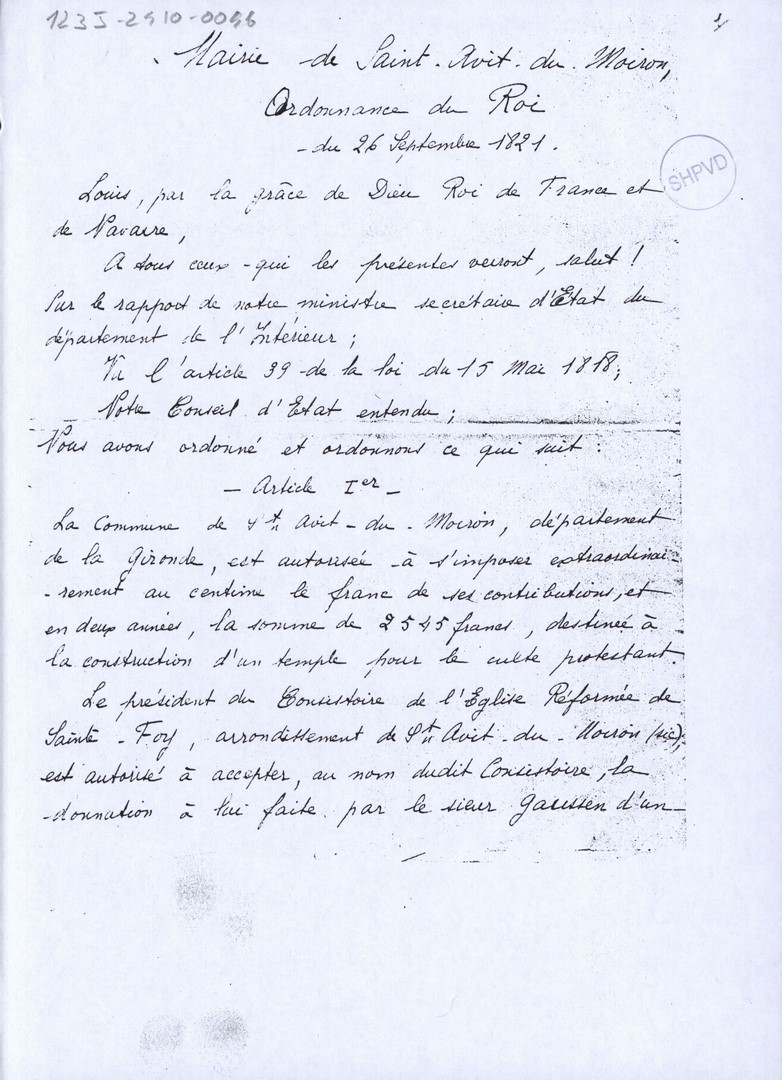 123 J-2910-0096
1
Mairie de Saint-Avit-du-Moiron,
Ordonnance du Roi
du 26 Septembre 1821.
SHPVD
Louis, par la grâce de Dieu Roi de France et
de Navarre,
A tous ceux qui les présentes verront, salut !
Sur le rapport de notre ministre secrétaire d'Etat du
département de l'Intérieur ;
Vu l'article 39 de la loi du 15 Mai 1818;
Notre Conseil d'Etat entendu ;
Nous avons ordonné et ordonnons ce qui suit :
- Article Ier -
La Commune de St Avit-du-Moiron, département
de la Gironde, est autorisée à s'imposer extraordinai-
-rement au centime le franc de ses contributions, et
en deux années, la somme de 2545 francs, destinée à
la construction d'un temple pour le culte protestant.
Le président du Consistoire de l'Eglise Réformée de
Sainte-Foy, arrondissement de St Avit-du-Moiron (sic),
est autorisé à accepter, au nom dudit Consistoire, la
donnation à lui faite par le sieur Garissen d'un